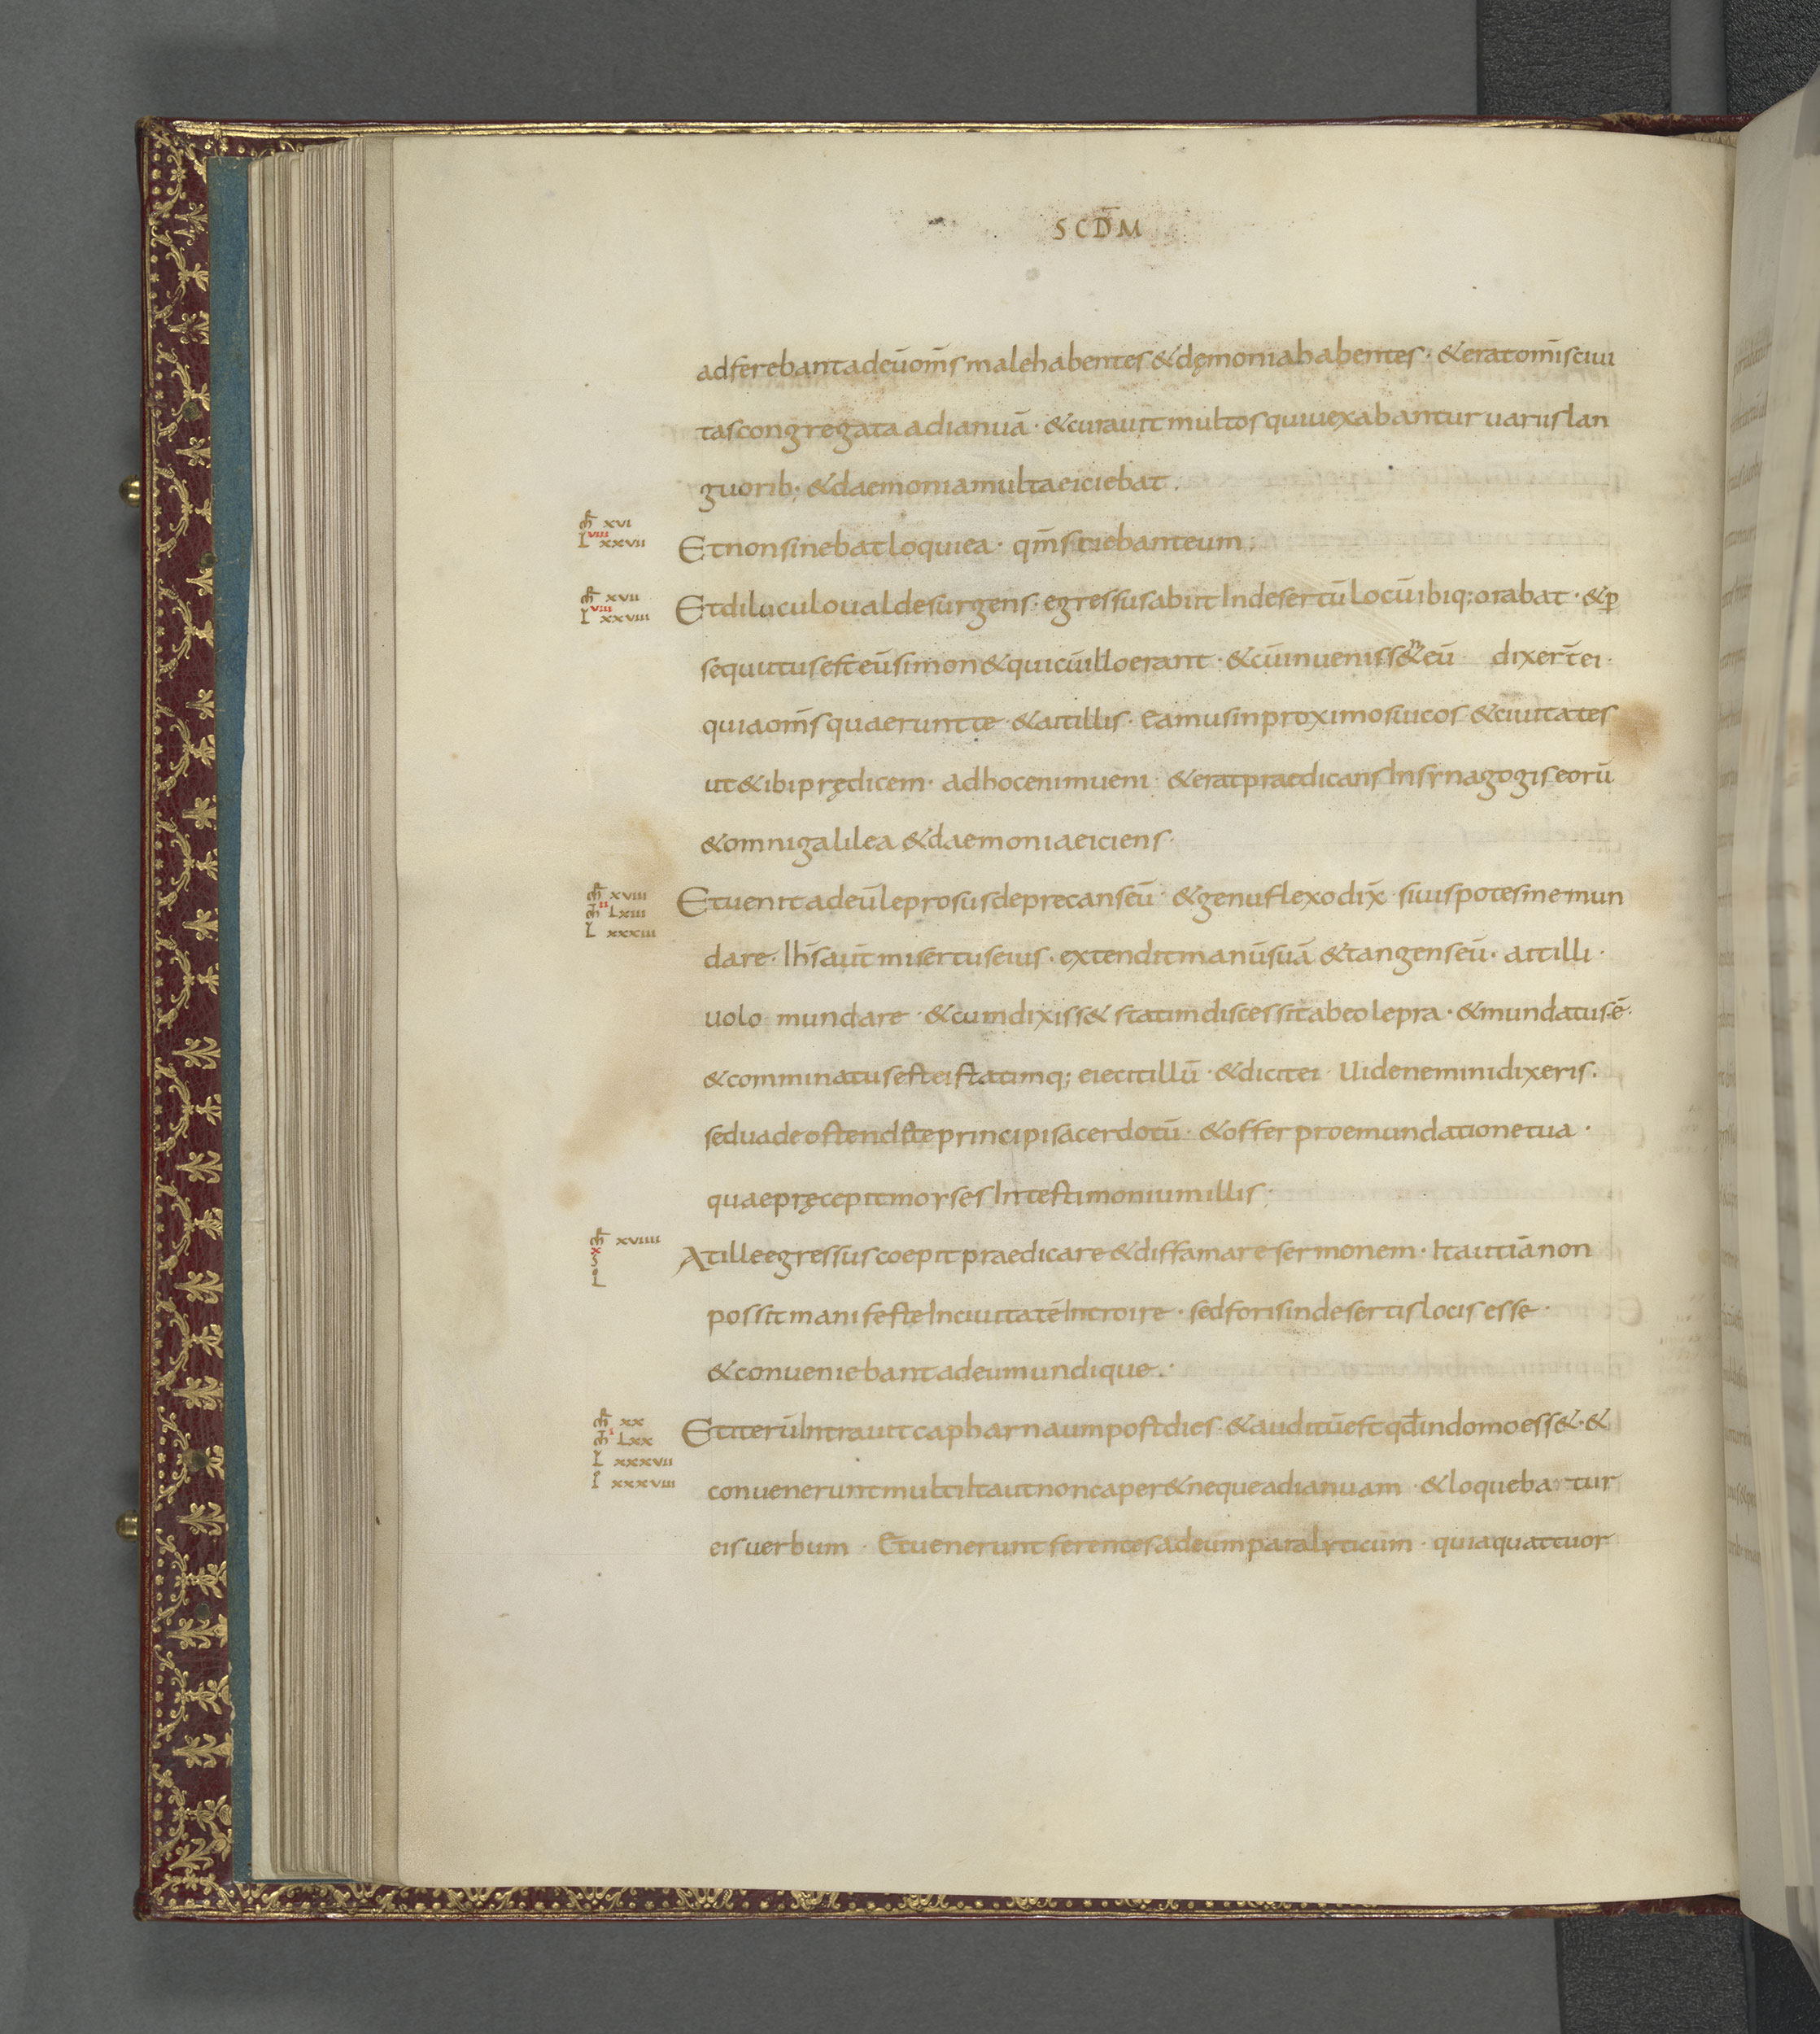 SCDM̄
adferebant ad eū om̄s male habentes & dęmonia habentes · & erat om̄is ciui
tas congregata ad ianuā · & curauit multos qui uexabantur uariis lan
guorib; & daemonia multa eiciebat .
m̄r xvi
viii
L xxvii
Et non sinebat loqui ea · qm̄ sciebant eum ;
m̄r xvii
viii
L xxviii
Et diluculo ualde surgens · egressus abiit In desertū locū ibiq; orabat · & p̄
sequutus est eū simon & qui cū illo erant · & cū inueniss&n̄ eū dixer̄t ei ·
quia om̄s quaerunt te · & ait illis · Eamus in proximos uicos & ciuitates
ut & ibi prędicem · ad hoc enim ueni · & erat praedicans In synagogis eorū
& omni galilea & daemonia eiciens ·
m̄r xviii
ii
m̄t Lxiii
L xxxiii
Et uenit ad eū leprosus deprecans eū · & genu flexo dix̄ · si uis potes me mun
dare · Ih̄s aūt misertus eius · extendit manū suā & tangens eū · ait illi ·
uolo mundare · & cum dixiss& statim discessit ab eo lepra · & mundatus ē ·
& comminatus est ei statimq; eiecit illū · & dicit ei · Uide nemini dixeris .
sed uade ostende te principi sacerdotū · & offer pro emundatione tua ·
quae pręcepit moyses In testimonium illis ;
m̄r xviiii
x
L
At ille egressus coepit praedicare & diffamare sermonem · Ita ut iā non
possit manifeste In ciuitatē Introire · sed foris in desertis locis esse ·
& conueniebant ad eum undique . ·
m̄r xx
i
m̄t Lxx
L xxxvii
I xxxviii
Et iterū Intrauit capharnaum post dies · & auditū est qd̄ in domo ess& · &
conuenerunt multi Ita ut non caper& neque ad ianuam · & loqueba tur
eis uerbum · Et uenerunt ferentes ad eum paralyticum · qui a quattuor